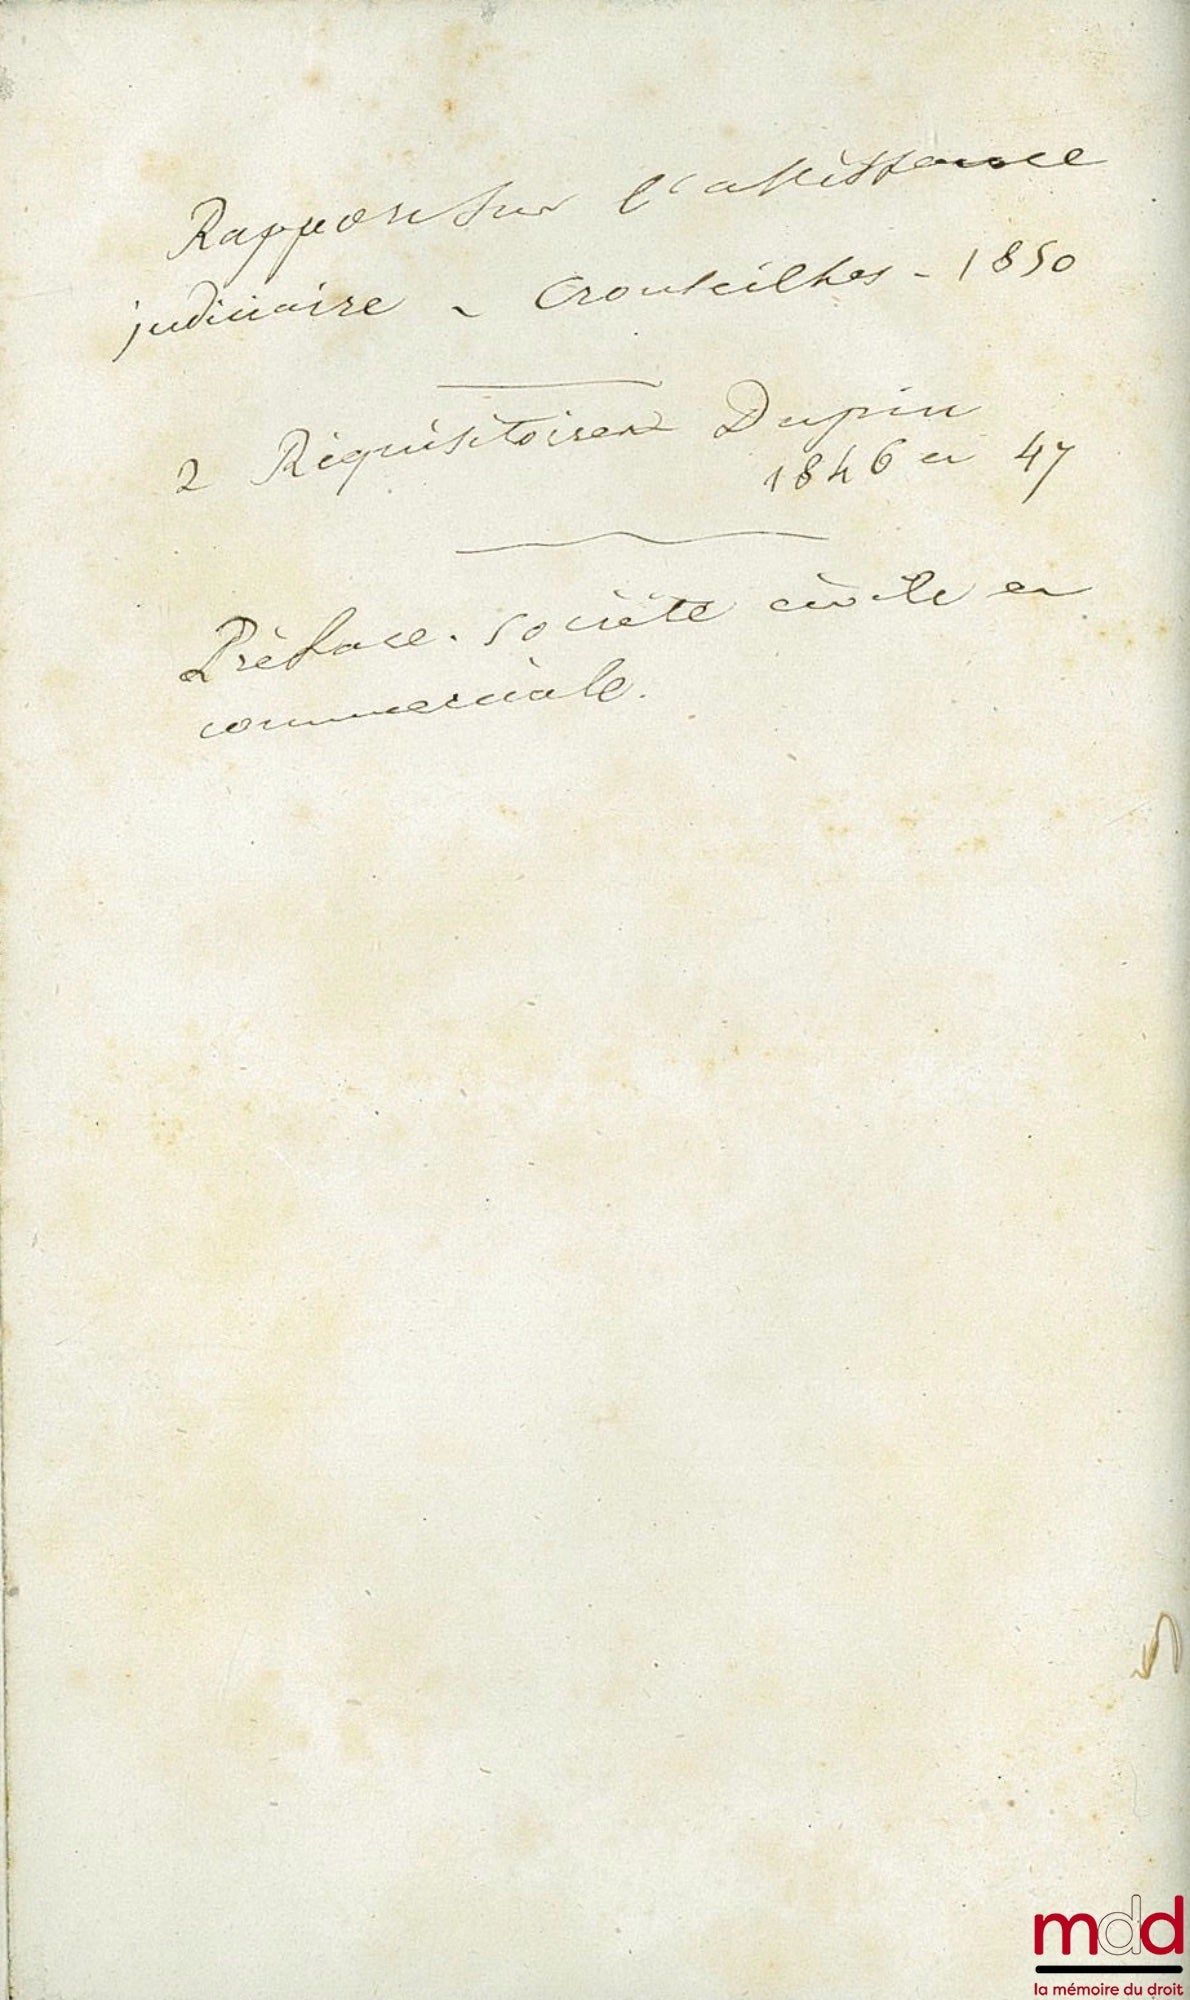 Rapport sur l'assistance
judiciaire - Crouseilhes - 1850
2 Réquisitoires Dupin
1846 et 47
Préface. société civile et
commerciale.
mdd
la mémoire du droit